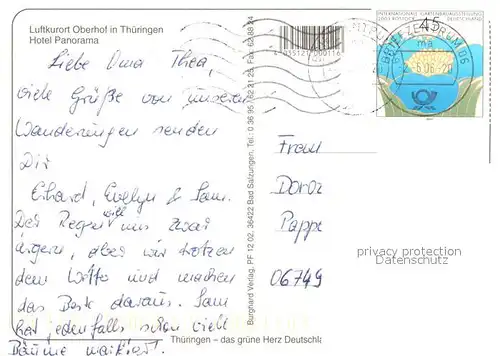 Luftkurort Oberhof in Thüringen
Hotel Panorama
Liebe Oma Thea,
viele Grüße von unseren
Wanderungen senden
Dir
Erhard, Evelyn & Sam.
Der Regen will uns zwar
ärgern, aber wir trotzen
dem Wetter und machen
das Beste daraus. Sam
hat jedenfalls schon viele
Bäume markiert.
Burghard Verlag, PF 12 02, 36422 Bad Salzungen, Tel.: 0 36 95 / 62 21 25, Fax
INTERNATIONALE GARTENBAUAUSSTELLUNG
2003 ROSTOCK
DEUTSCHLAND
45
BRIEFZENTRUM 06
Frau
Doroz
Pappe
06749
privacy protection
Datenschutz
Thüringen – das grüne Herz Deutschla